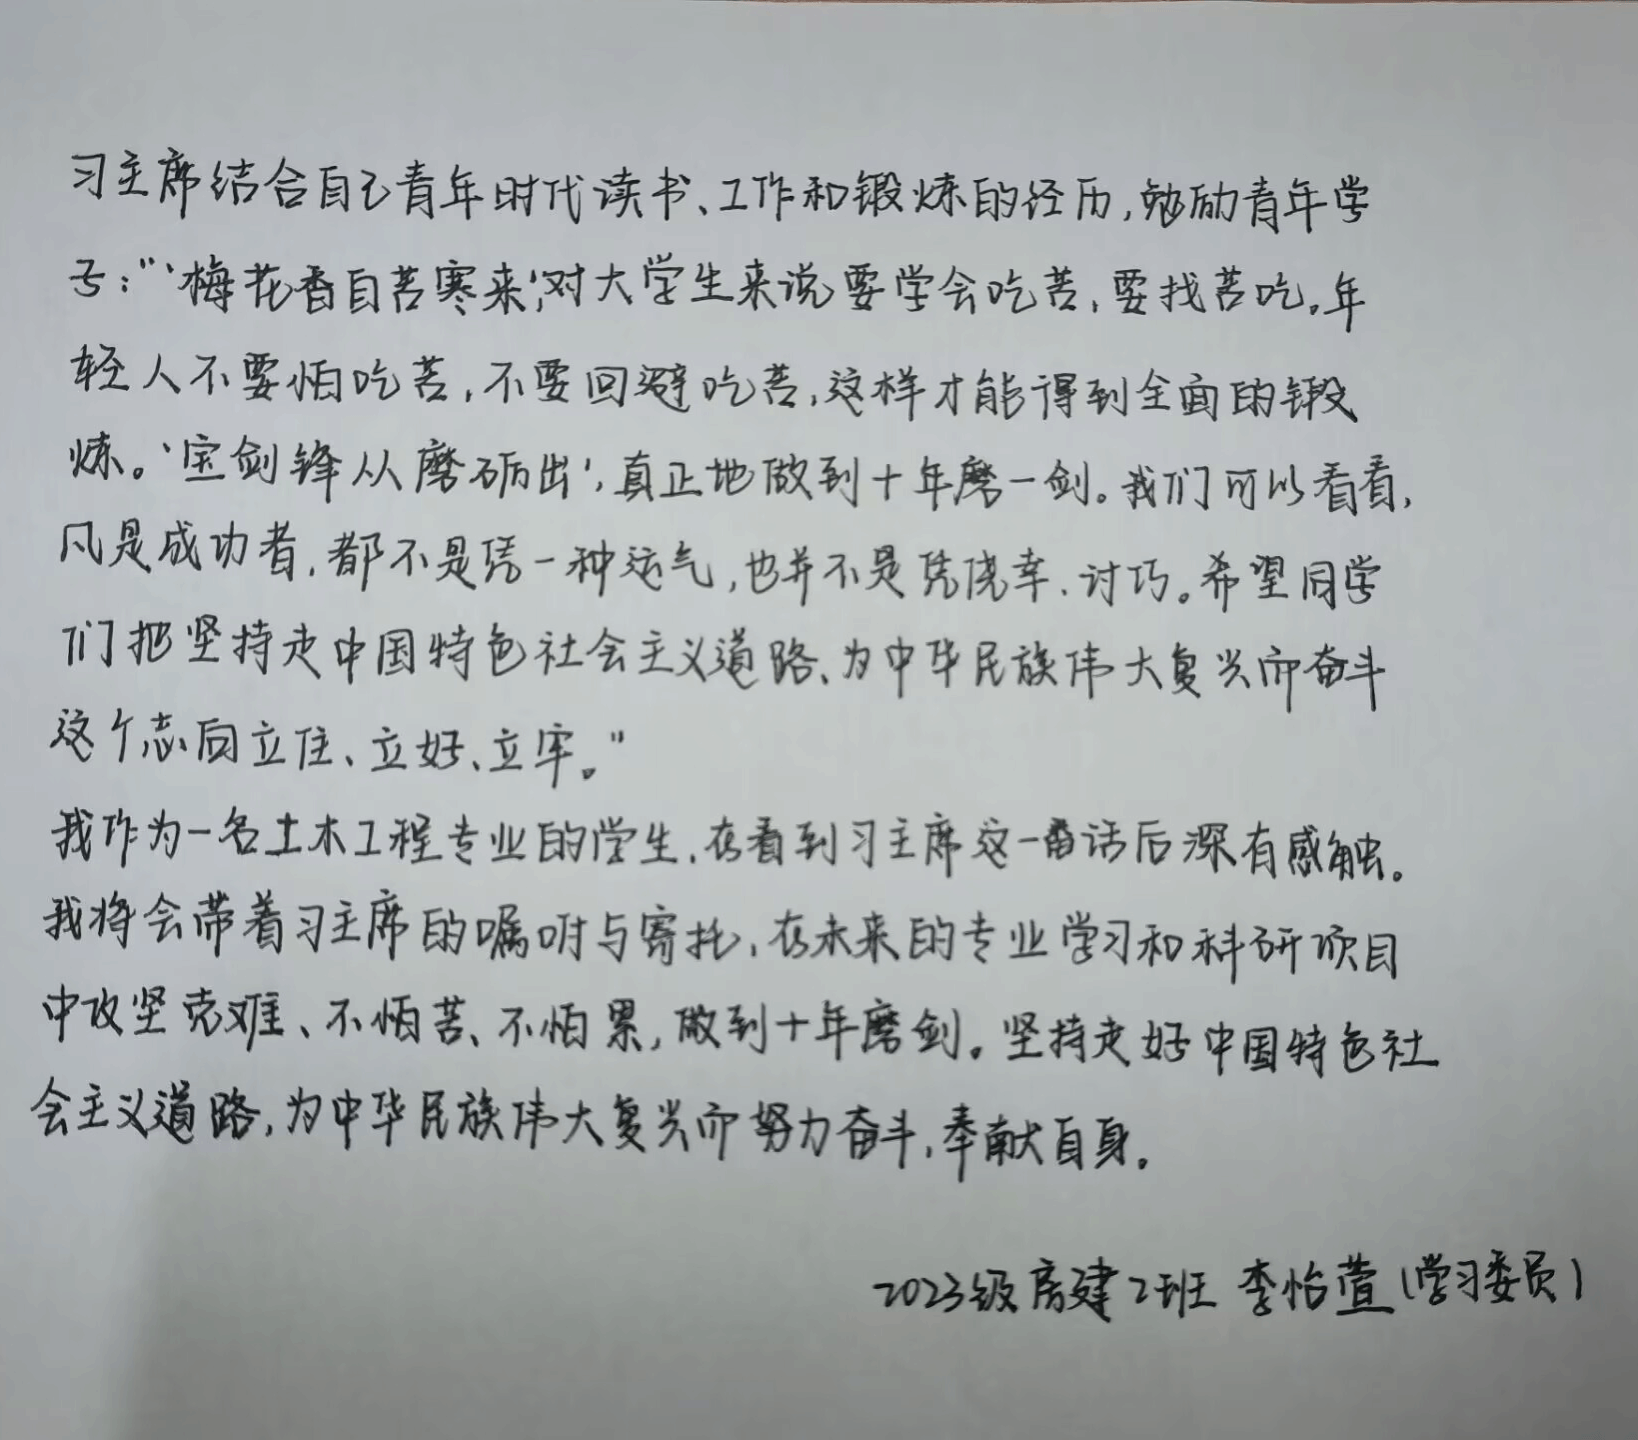 习主席结合自己青年时代读书、工作和锻炼的经历,勉励青年学
子:“‘梅花香自苦寒来’,对大学生来说要学会吃苦,要找苦吃。年
轻人不要怕吃苦,不要回避吃苦,这样才能得到全面的锻
炼。‘宝剑锋从磨砺出’,真正地做到十年磨一剑。我们可以看看,
凡是成功者,都不是凭一种运气,也并不是凭侥幸、讨巧。希望同学
们把坚持走中国特色社会主义道路、为中华民族伟大复兴而奋斗
这个志向立住、立好、立牢。”
我作为一名土木工程专业的学生,在看到习主席这一番话后深有感触。
我将会带着习主席的嘱咐与寄托,在未来的专业学习和科研项目
中攻坚克难、不怕苦、不怕累,做到十年磨剑。坚持走好中国特色社
会主义道路,为中华民族伟大复兴而努力奋斗,奉献自身。
2023级房建2班 李怡萱(学习委员)